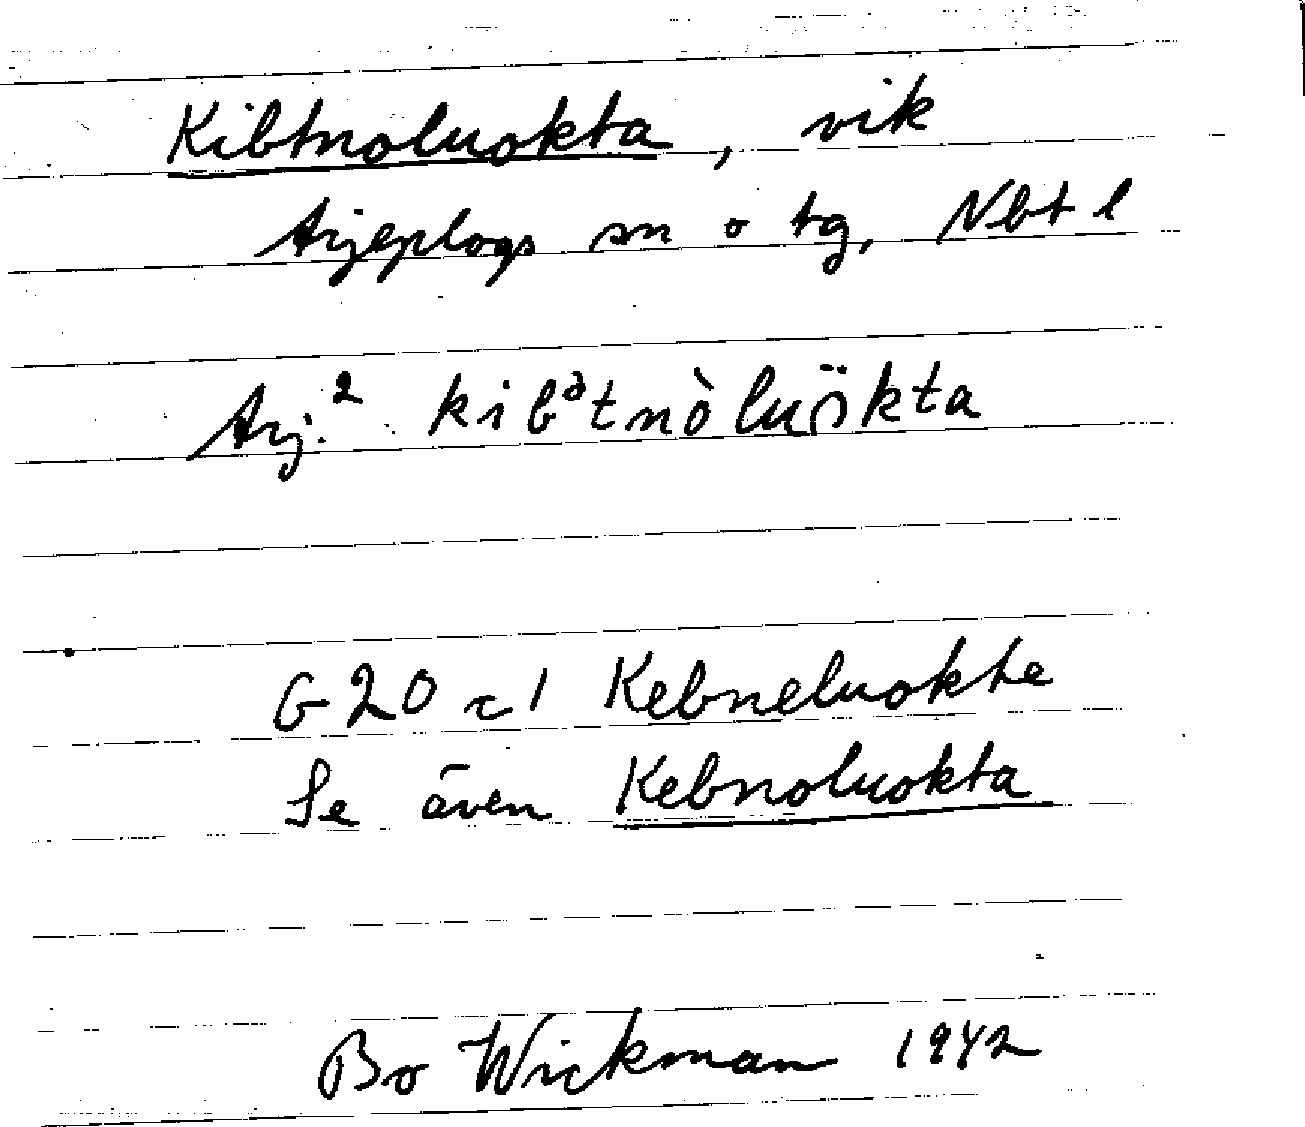 Kibtnoluokta, vik
Arjeplogs sn o tg, Nbt l
Arj.² kibᵊtnòluŏ̈kta
G20 c1 Kebneluokte
Se även Kebnoluokta
Bo Wickman 1942